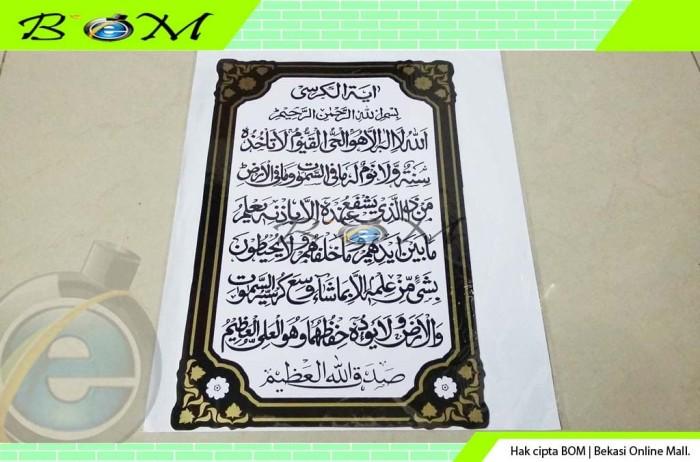 BOM
اية الكرسي
بسم الله الرحمن الرحيم
الله لا اله الا هو الحي القيوم لا تأخذه
سنة ولا نوم له ما في السموت وما في الارض
من ذا الذي يشفع عنده الا باذنه يعلم
ما بين ايديهم وما خلفهم ولا يحيطون
بشئ من علمه الا بما شاء وسع كرسيه السموت
والارض ولا يؤده حفظهما وهو العلي العظيم
صدق الله العظيم
BOM
Hak cipta BOM | Bekasi Online Mall.